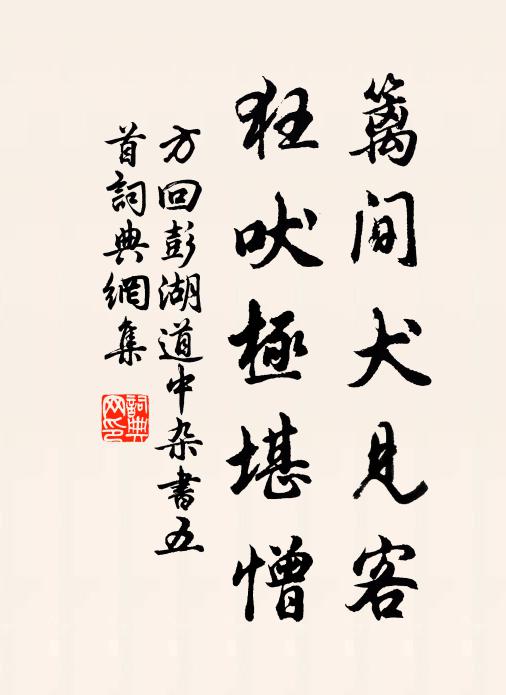 篱間犬見客
狂吠極堪憎
方回彭湖道中杂書五
首詞典網集
詞典
网印